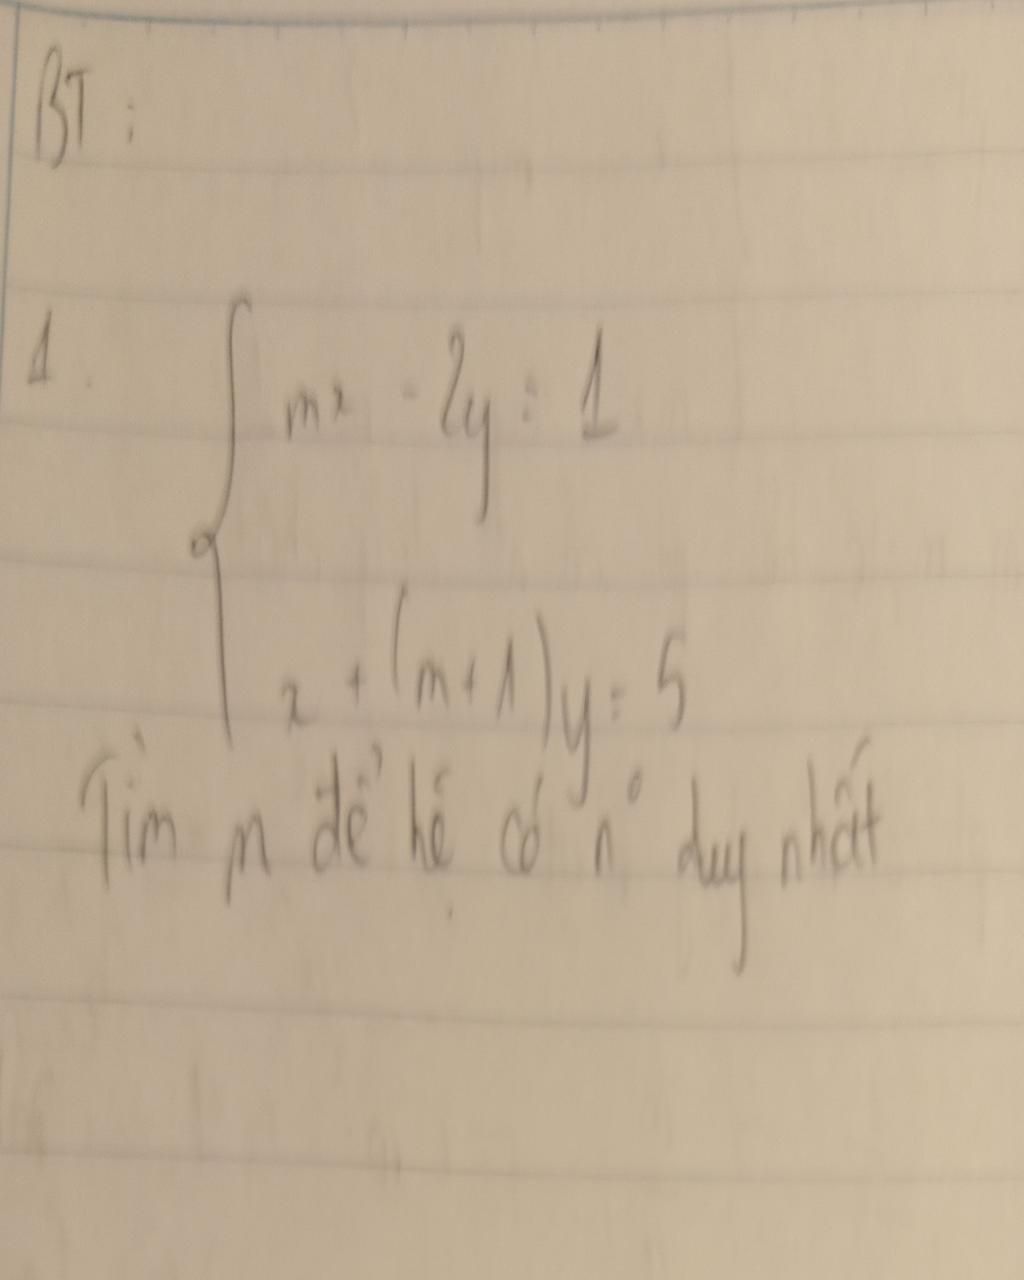 BT :
1. { mx - 2y = 1
x + (m+1)y = 5
Tìm m để hệ có n° duy nhất